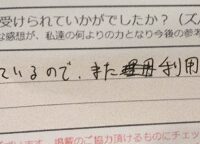 受けられていかがでしたか？（ズ
な感想が、私達の何よりの力となり今後の参考
ているので、また利用
ざいます。掲載のご協力頂けるものにチェッ